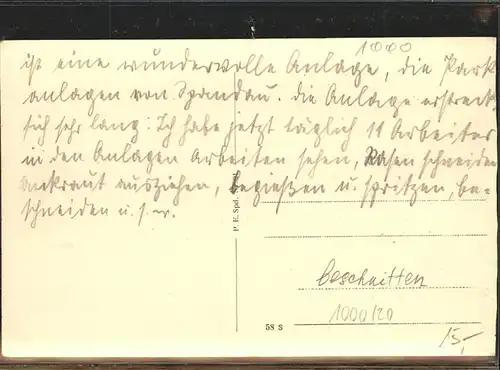 1000
ist eine wundervolle Anlage, die Park
anlagen von Spandau. die Anlage erstreckt
sich sehr lang: Ich habe jetzt täglich 11 Arbeiter
in den Anlagen Arbeiten sehen, Rasen schneiden
Unkraut ausziehen, begießen u. spritzen, be-
schneiden u. s. w.
P. E. Spd.
beschnitten
1000/20
58 S
15,-